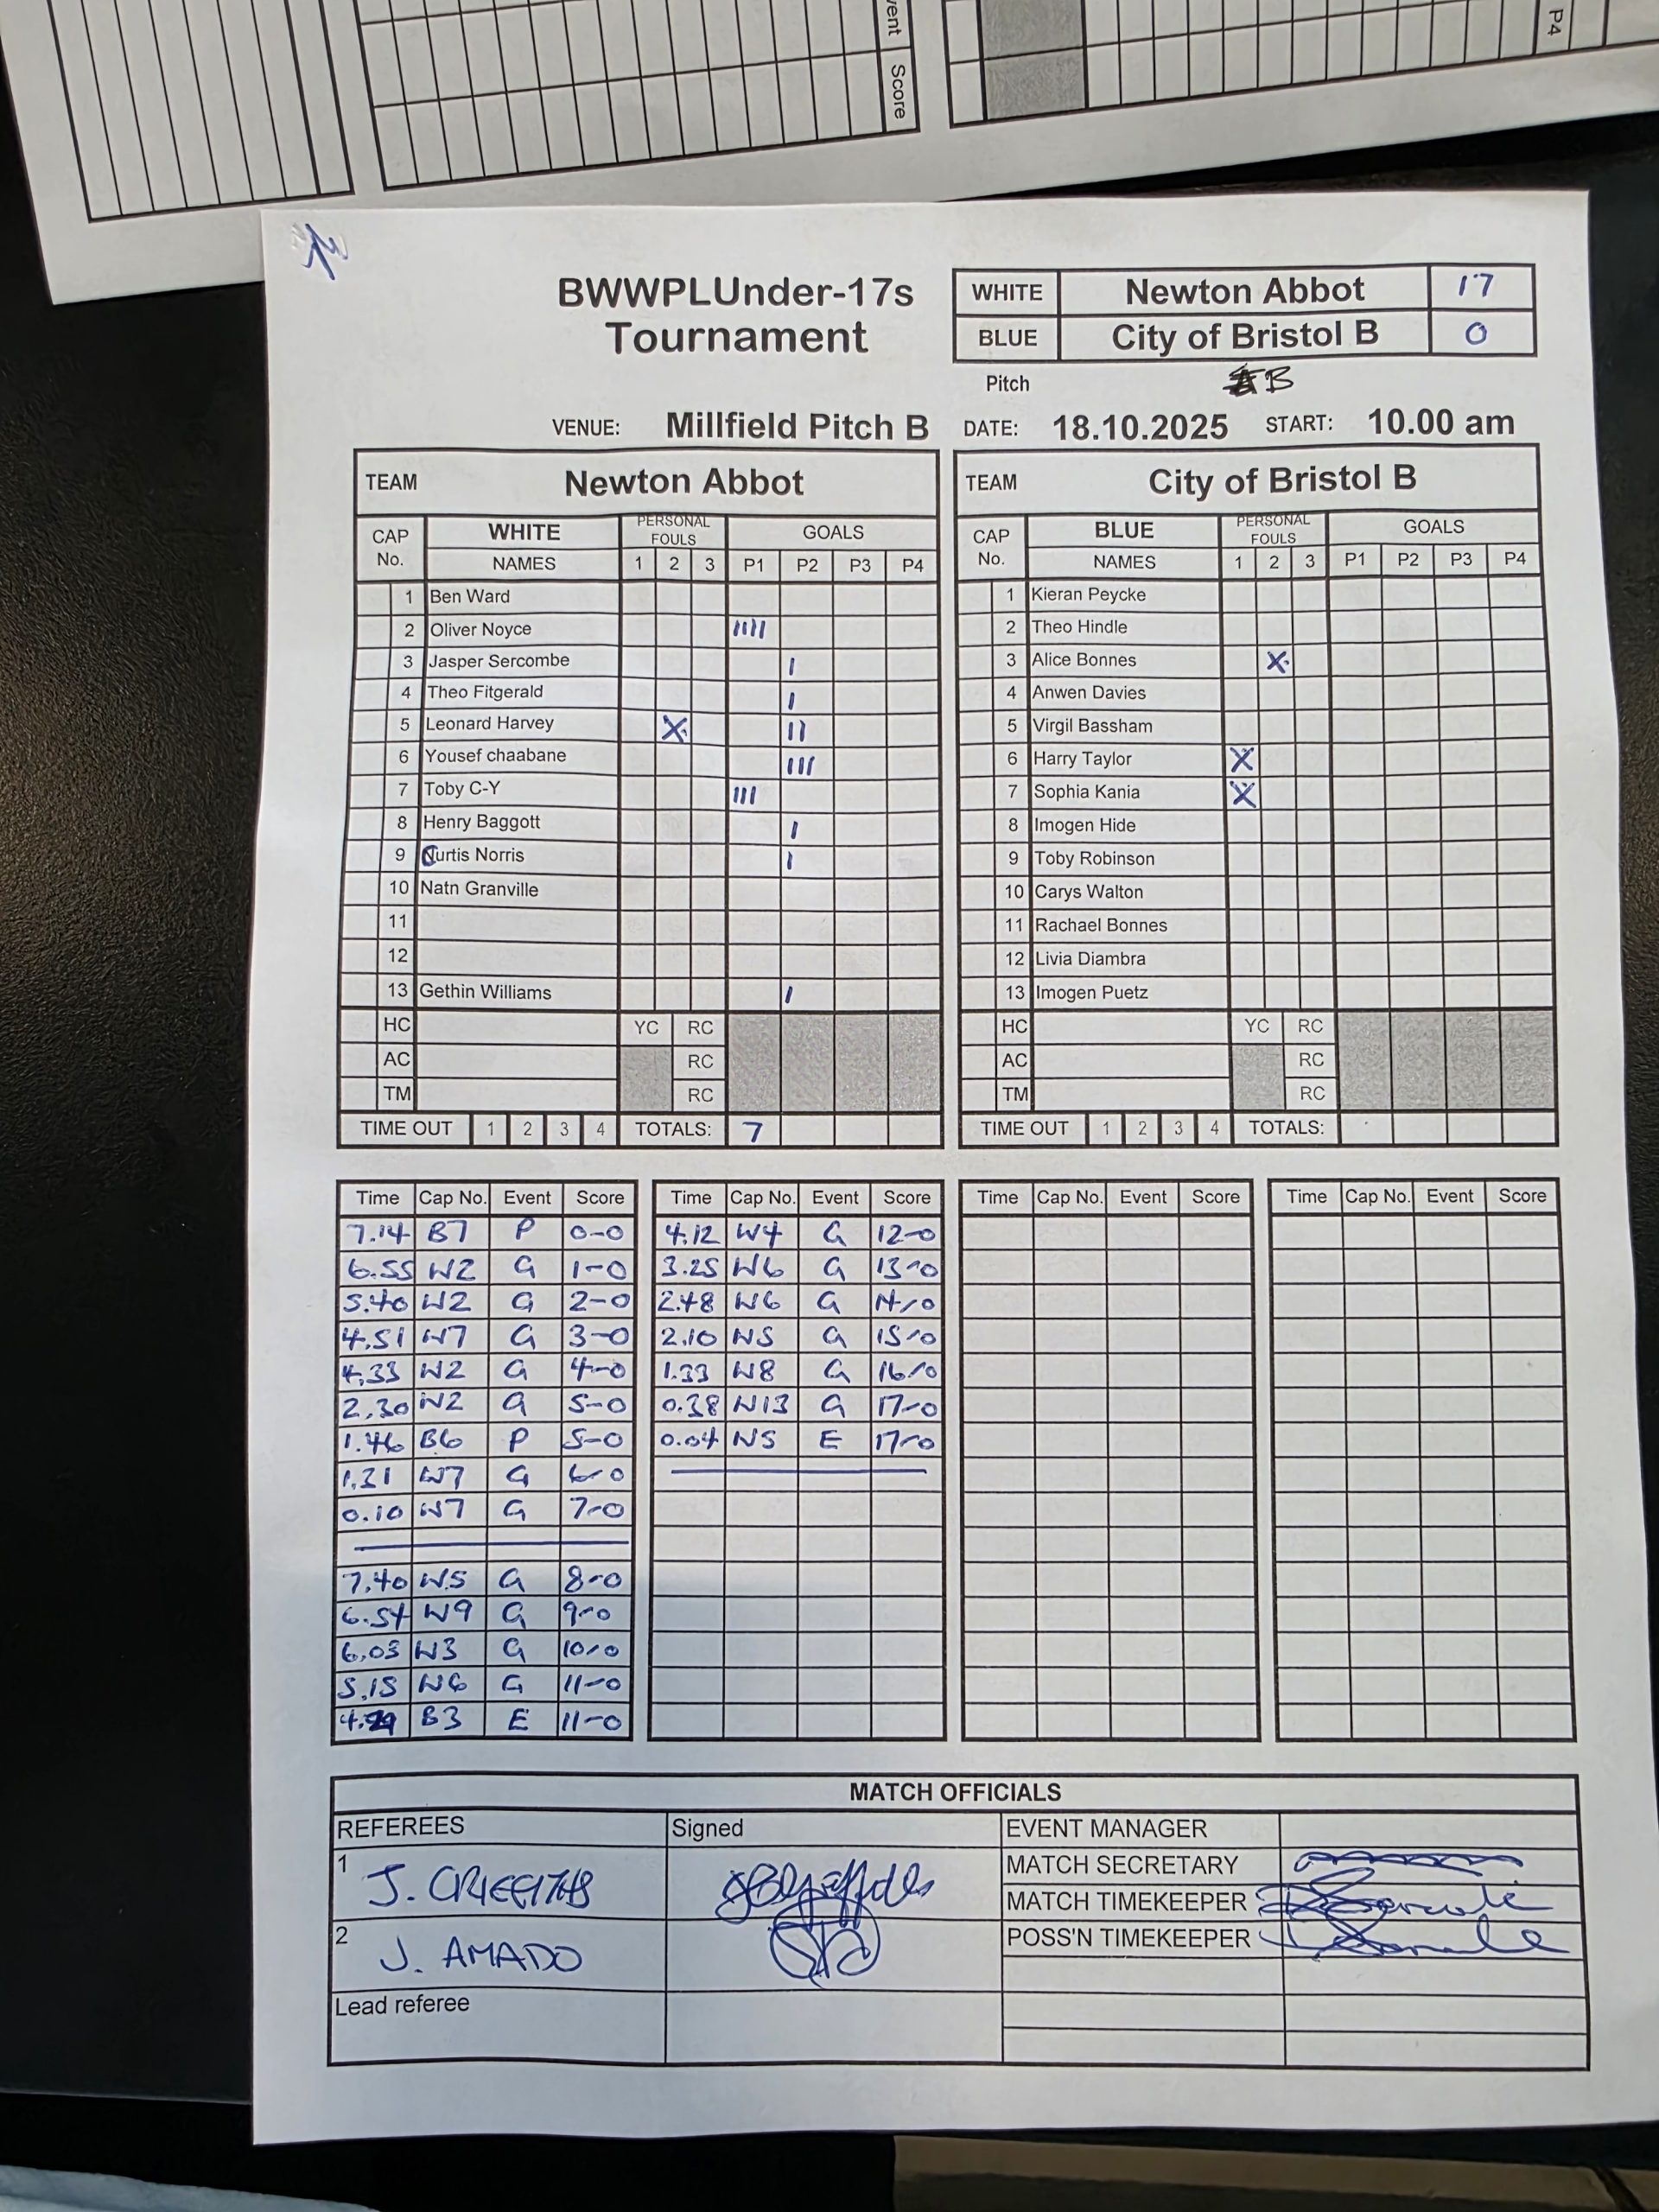 vent Score
P4
BWWPLUnder-17s
Tournament
WHITE Newton Abbot 17
BLUE City of Bristol B 0
Pitch B
VENUE: Millfield Pitch B DATE: 18.10.2025 START: 10.00 am
TEAM Newton Abbot
CAP No. WHITE PERSONAL FOULS GOALS
NAMES 1 2 3 P1 P2 P3 P4
1 Ben Ward
2 Oliver Noyce IIII
3 Jasper Sercombe I
4 Theo Fitgerald I
5 Leonard Harvey X II
6 Yousef chaabane III
7 Toby C-Y III
8 Henry Baggott I
9 Curtis Norris I
10 Natn Granville
11
12
13 Gethin Williams I
HC YC RC
AC RC
TM RC
TIME OUT 1 2 3 4 TOTALS: 7
TEAM City of Bristol B
CAP No. BLUE PERSONAL FOULS GOALS
NAMES 1 2 3 P1 P2 P3 P4
1 Kieran Peycke
2 Theo Hindle
3 Alice Bonnes X
4 Anwen Davies
5 Virgil Bassham
6 Harry Taylor X
7 Sophia Kania X
8 Imogen Hide
9 Toby Robinson
10 Carys Walton
11 Rachael Bonnes
12 Livia Diambra
13 Imogen Puetz
HC YC RC
AC RC
TM RC
TIME OUT 1 2 3 4 TOTALS:
Time Cap No. Event Score
7.14 B7 P 0-0
6.55 W2 G 1-0
5.40 W2 G 2-0
4.51 W7 G 3-0
4.33 W2 G 4-0
2.30 W2 G 5-0
1.46 B6 P 5-0
1.31 W7 G 6-0
0.10 W7 G 7-0
7.40 W5 G 8-0
6.54 W9 G 9-0
6.03 W3 G 10-0
5.15 W6 G 11-0
B3 E 11-0
Time Cap No. Event Score
4.12 W4 G 12-0
3.25 W6 G 13-0
2.48 W6 G 14-0
2.10 W5 G 15-0
1.33 W8 G 16-0
0.38 W13 G 17-0
0.04 W5 E 17-0
Time Cap No. Event Score
Time Cap No. Event Score
MATCH OFFICIALS
REFEREES Signed EVENT MANAGER
1 J. GRIFFITHS MATCH SECRETARY
MATCH TIMEKEEPER
2 J. AMADO POSS'N TIMEKEEPER
Lead referee